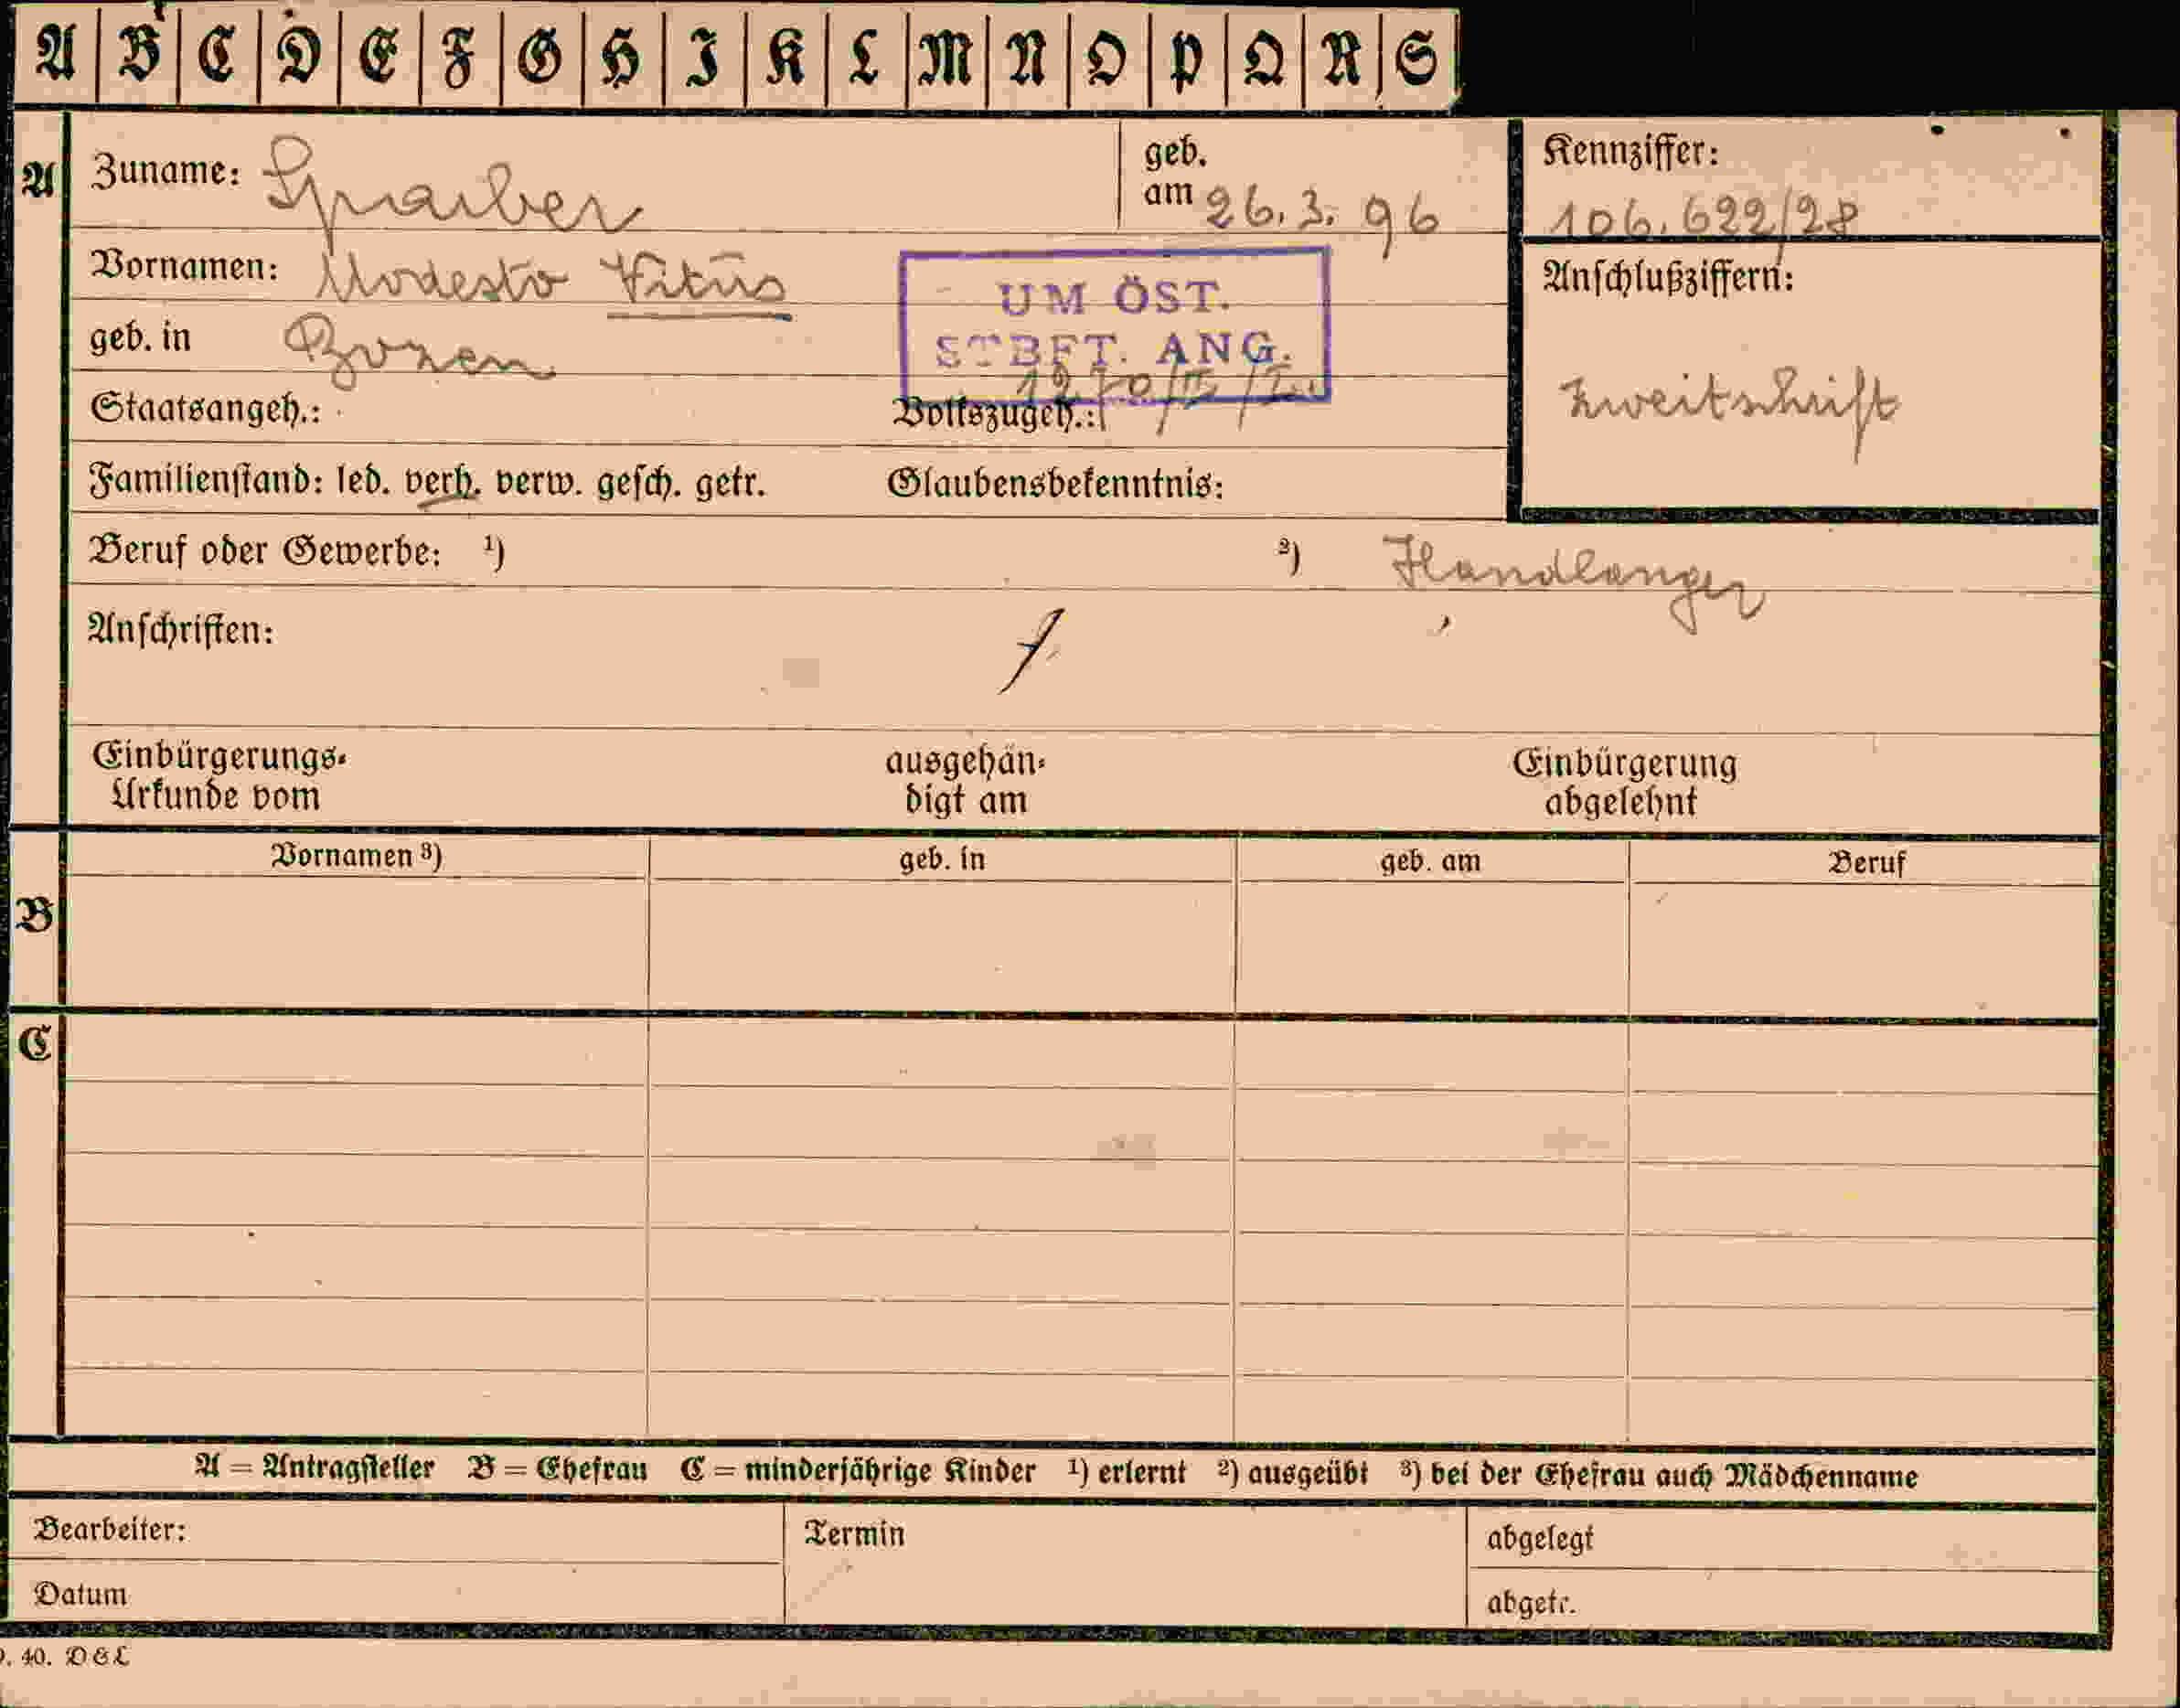 A B C D E F G H I K L M N O P Q R S
A Zuname: Spraiber geb. am 26. 3. 96 Kennziffer: 106.622/28
Vornamen: Modesto Vitus
UM ÖST.
STBFT. ANG.
Anschlußziffern:
Zweitschrift
geb. in Bozen
Staatsangeh.: Volkszugeh.:
Familienstand: led. verh. verw. gesch. getr. Glaubensbekenntnis:
Beruf oder Gewerbe: ¹) ²) Handlanger
Anschriften:
Einbürgerungs-
Urkunde vom
ausgehän-
digt am
Einbürgerung
abgelehnt
Vornamen ³) geb. in geb. am Beruf
B
C
A = Antragsteller B = Ehefrau C = minderjährige Kinder ¹) erlernt ²) ausgeübt ³) bei der Ehefrau auch Mädchenname
Bearbeiter: Termin abgelegt
Datum abgetr.
40. D & L